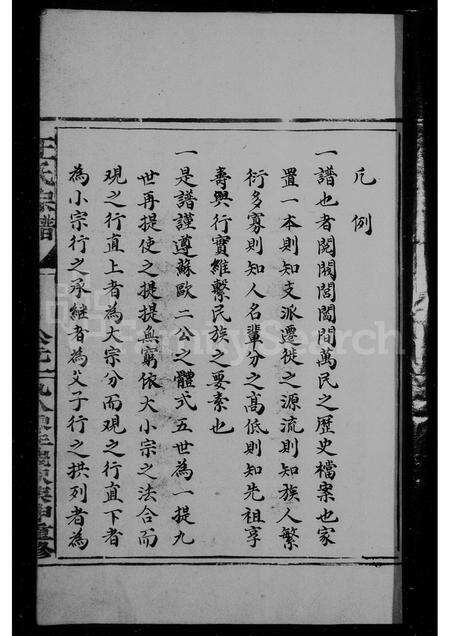 凡例
一譜也者閱閥閭閻間萬民之歷史檔案也家
置一本則知支派遷徙之源流則知族人繁
衍多寡則知人名輩分之髙低則知先祖享
壽與行實維繫民族之要素也
一是譜謹遵蘇歐二公之體式五世為一提九
世再提使之提提無窮依大小宗之法合而
观之行直上者為大宗分而观之行直下者
為小宗行之承継者為父子行之拱列者為
王氏宗譜
FamilySearch